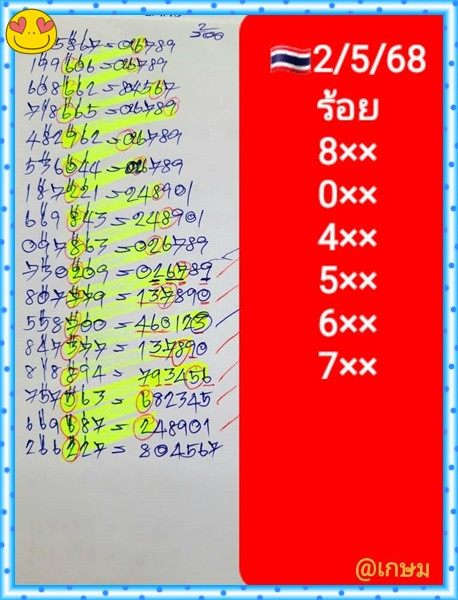 5867=026789
199606=026789
668662=84567
718665=026789
482962=026789
536044=026789
187221=248901
669843=248901
097863=026789
730209=026789
807979=137890
558700=460123
847577=137890
818894=793456
757563=682345
669687=248901
266227=804567
🇹🇭2/5/68
ร้อย
8××
0××
4××
5××
6××
7××
@เกษม